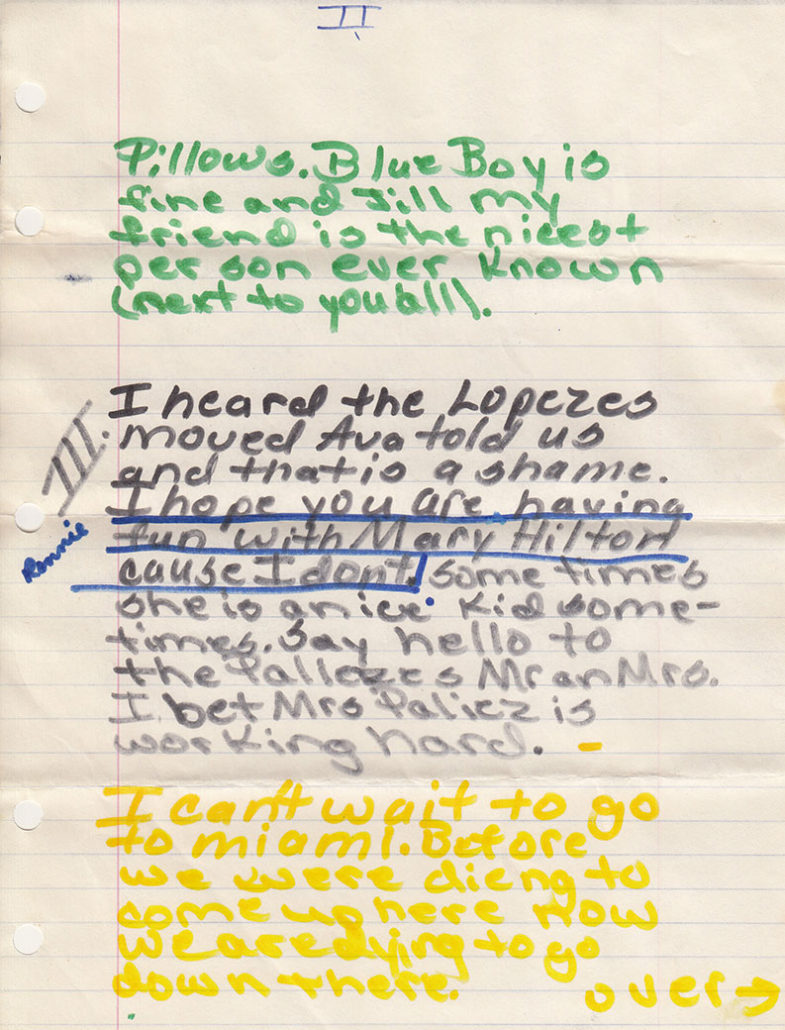 II
Pillows. Blue Boy is
fine and Jill my
friend is the nicest
per son ever known
(next to you all).
III.
I heard the Lopezes
moved Ava told us
and that is a shame.
I hope you are having
fun with Mary Hilton
Rennie
cause I dont. some times
she is an ice kid some-
times. Say hello to
the Pallezes Mr an Mrs.
I bet Mrs Paliez is
working hard.
I can't wait to go
to miami. Before
we were dieng to
come up here now
we are dying to go
down there.
over →